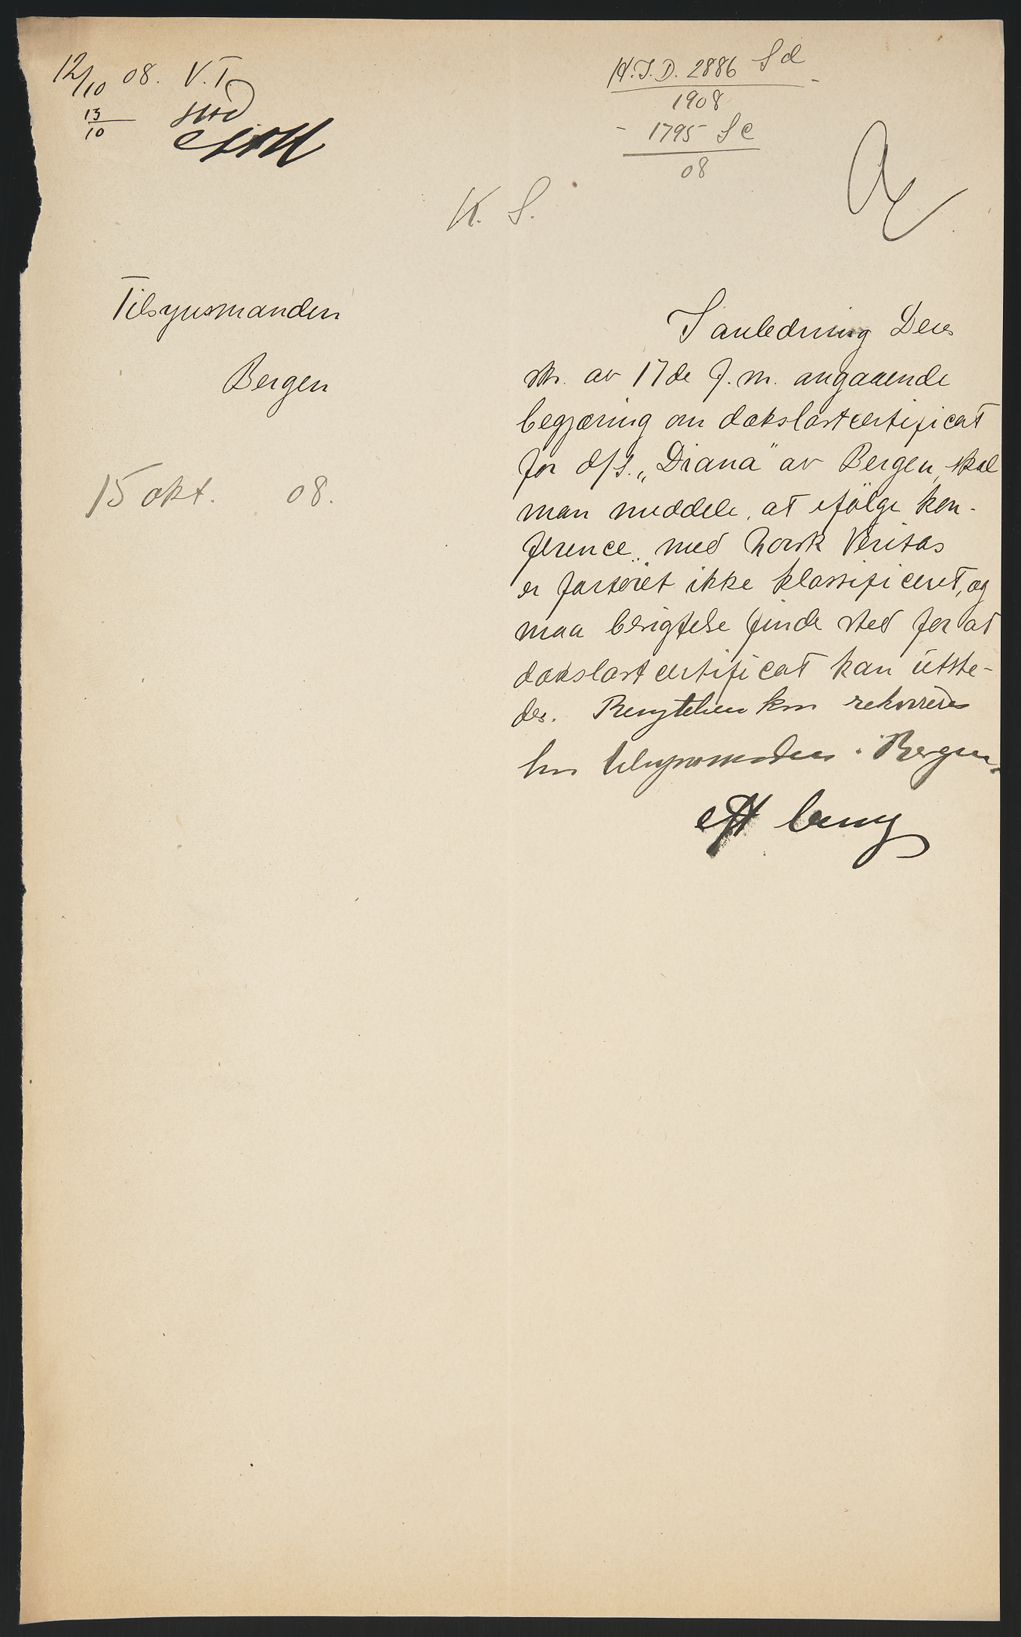 12/10 08. V. T
13/10
H.I.D. 2886 Sd
1908
- 1795 Sc
08
K. S.
Tilsynsmanden
Bergen
15 okt. 08.
I anledning Deres
skr. av 17de f. m. angaaende
begjæring om dækslastcertificat
for d/s. „Diana" av Bergen, skal
man meddele, at ifölge kon-
ference med Norsk Veritas
er fartöiet ikke klassificeret, og
maa besigtelse finde sted for at
dækslastcertificat kan utste-
des. Besigtelsen kan rekvireres
hos tilsynsmanden i Bergen.